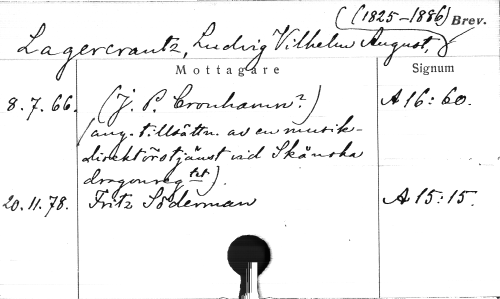 (1825–1886) Brev.
Lagercrantz, Ludvig Vilhelm August,
Mottagare Signum
8.7.66. (J. P. Cronhamn?) A 16:60.
(ang. tillsättn. av en musik-
direktörstjänst vid Skånska
dragonreg tet).
20.11.78. Fritz Söderman A 15:15.